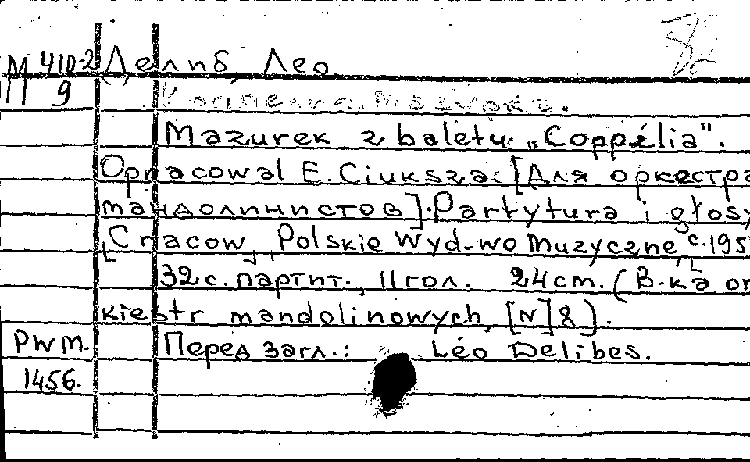 М 410-2 Делиб, Лео
9
Mazurek z baletu „Coppélia".
Opracowal E. Ciuksza. [Для оркестра
мандолинистов]. Partytura i głosy
[Cracow], Polskie Wyd-wo Muzyczne, c. 195
32 с. партит., 11 гол. 24 cm. (B-ka or
kiestr mandolinowych, [N] 8).
PWM. Перед загл.: Léo Delibes.
1456.